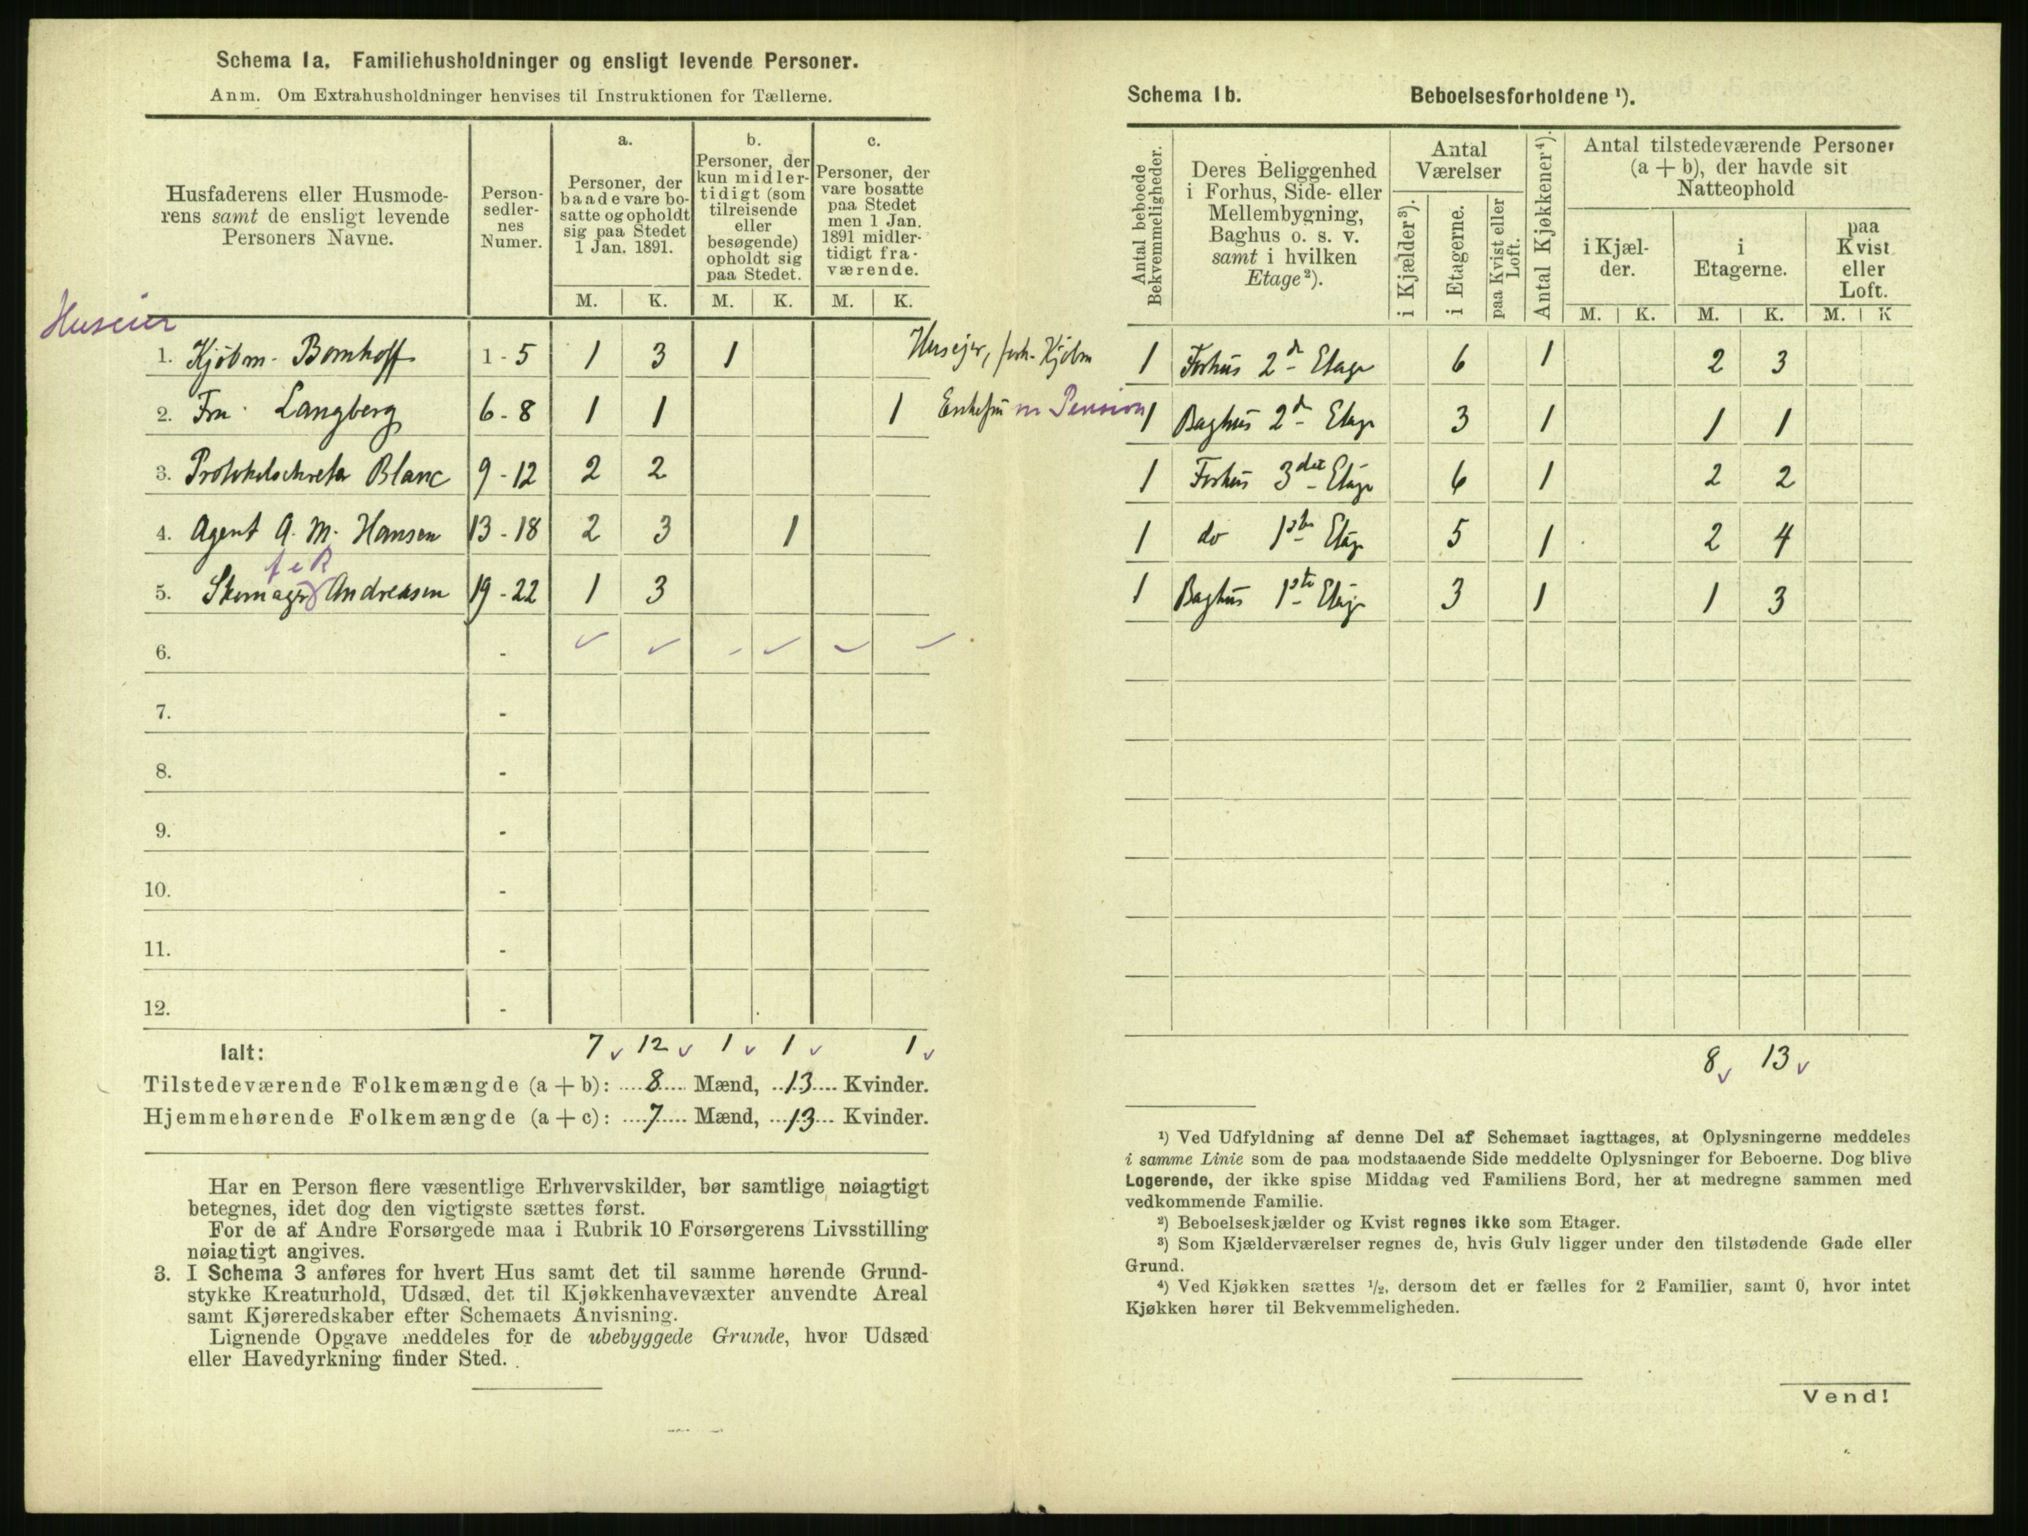 Schema 1a. Familiehusholdninger og ensligt levende Personer.
Anm. Om Extrahusholdninger henvises til Instruktionen for Tællerne.
Husfaderens eller Husmode-
rens samt de ensligt levende
Personers Navne.
Person-
sedler-
nes
Numer.
a.
Personer, der
baade vare bo-
satte og opholdt
sig paa Stedet
1 Jan. 1891.
b.
Personer, der
kun midler-
tidigt (som
tilreisende
eller
besøgende)
opholdt sig
paa Stedet.
c.
Personer, der
vare bosatte
paa Stedet
men 1 Jan.
1891 midler-
tidigt fra-
værende.
M. K. M. K. M. K.
Huseier
1. Kjøbm. Bomhoff 1 - 5 1 3 1 Husejer, forh. Kjøbm
2. Fru Langberg 6 - 8 1 1 1 Enkefru m Pension
3. Protokolsekretær Blanc 9 - 12 2 2
4. Agent A. M. Hansen 13 - 18 2 3 1
5. Skomager Andreasen 19 - 22 1 3
6. -
7. -
8. -
9. -
10. -
11. -
12. -
Ialt: 7 12 1 1 1
Tilstedeværende Folkemængde (a + b): 8 Mænd, 13 Kvinder.
Hjemmehørende Folkemængde (a + c): 7 Mænd, 13 Kvinder.
Har en Person flere væsentlige Erhvervskilder, bør samtlige nøiagtigt
betegnes, idet dog den vigtigste sættes først.
For de af Andre Forsørgede maa i Rubrik 10 Forsørgerens Livsstilling
nøiagtigt angives.
3. I Schema 3 anføres for hvert Hus samt det til samme hørende Grund-
stykke Kreaturhold, Udsæd, det til Kjøkkenhavevæxter anvendte Areal
samt Kjøreredskaber efter Schemaets Anvisning.
Lignende Opgave meddeles for de ubebyggede Grunde, hvor Udsæd
eller Havedyrkning finder Sted.
Schema 1b. Beboelsesforholdene ¹).
Antal beboede
Bekvemmeligheder.
Deres Beliggenhed
i Forhus, Side- eller
Mellembygning,
Baghus o. s. v.
samt i hvilken
Etage ²).
Antal
Værelser
i Kjælder ³).
i Etagerne.
paa Kvist eller
Loft.
Antal Kjøkkener ⁴).
Antal tilstedeværende Personer
(a + b), der havde sit
Natteophold
i Kjæl-
der.
i
Etagerne.
paa
Kvist
eller
Loft.
M. K. M. K. M. K
1 Forhus 2d Etage 6 1 2 3
1 Baghus 2d Etage 3 1 1 1
1 Forhus 3die Etage 6 1 2 2
1 do 1ste Etage 5 1 2 4
1 Baghus 1ste Etage 3 1 1 3
8 13
¹) Ved Udfyldning af denne Del af Schemaet iagttages, at Oplysningerne meddeles
i samme Linie som de paa modstaaende Side meddelte Oplysninger for Beboerne. Dog blive
Logerende, der ikke spise Middag ved Familiens Bord, her at medregne sammen med
vedkommende Familie.
²) Beboelseskjælder og Kvist regnes ikke som Etager.
³) Som Kjælderværelser regnes de, hvis Gulv ligger under den tilstødende Gade eller
Grund.
⁴) Ved Kjøkken sættes ½, dersom det er fælles for 2 Familier, samt 0, hvor intet
Kjøkken hører til Bekvemmeligheden.
Vend!